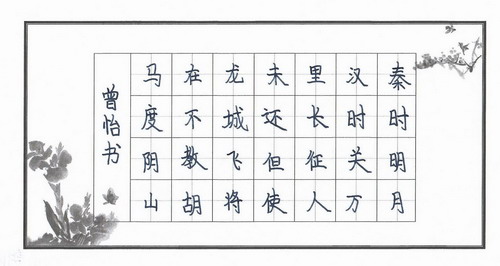 秦时明月
汉时关万
里长征人
未还但使
龙城飞将
在不教胡
马度阴山
曾怡书